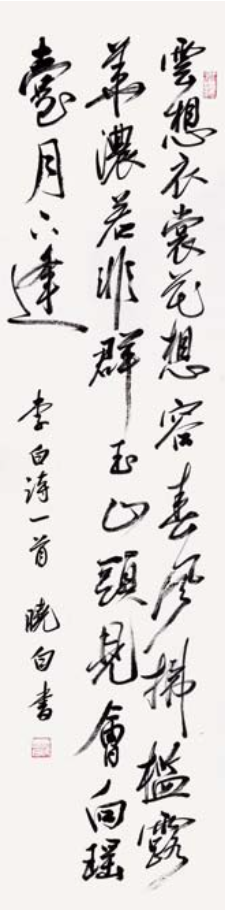 雲想衣裳花想容春風拂檻露
華濃若非群玉山頭見會向瑤
臺月下逢
李白詩一首 曉白書